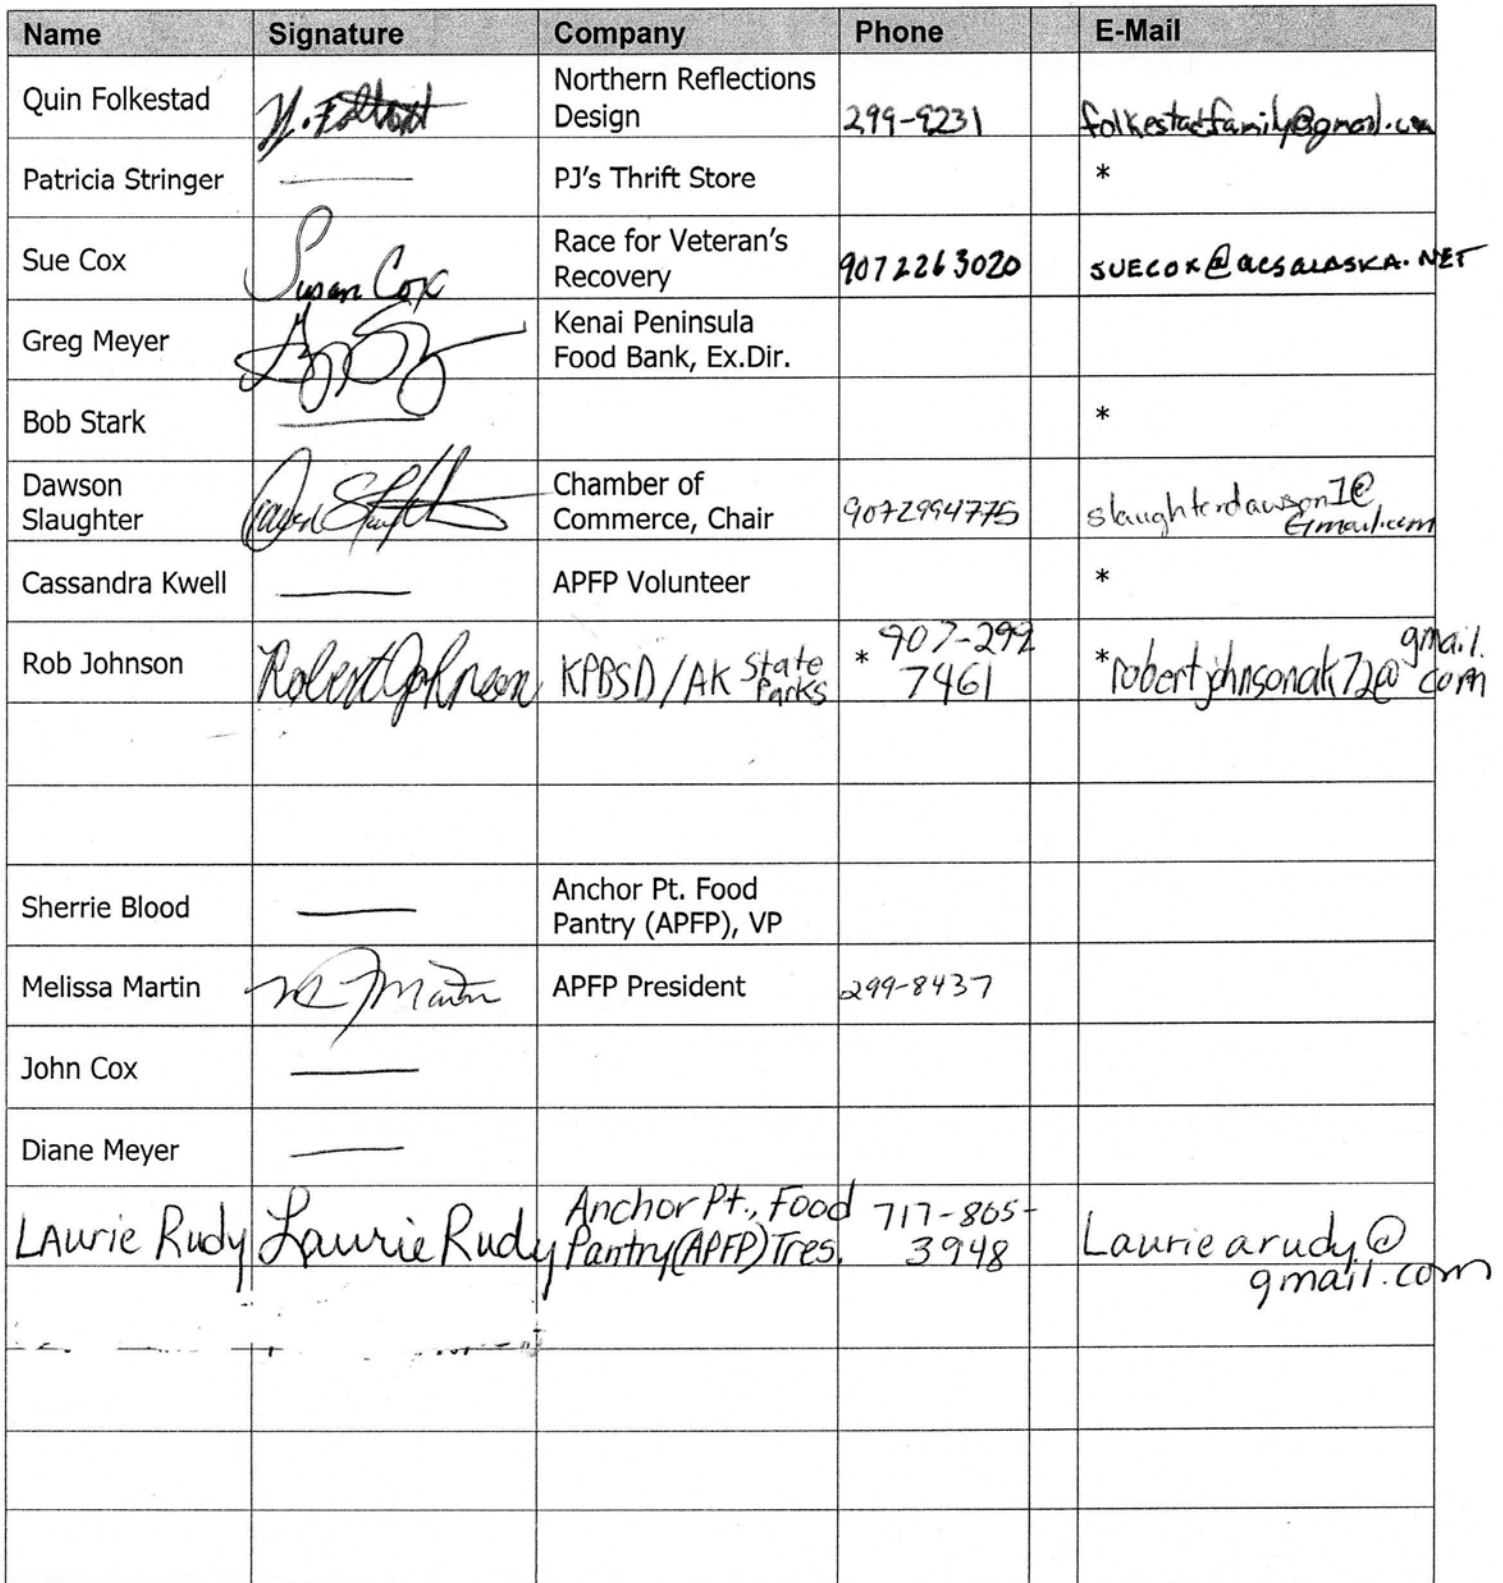 Name Signature Company Phone E-Mail
Quin Folkestad Northern Reflections
Design 299-9231 folkestadfamily@gmail.com
Patricia Stringer PJ's Thrift Store *
Sue Cox Susan Cox Race for Veteran's
Recovery 9072263020 SUECOX@acsalaska.NET
Greg Meyer Kenai Peninsula
Food Bank, Ex.Dir.
Bob Stark *
Dawson
Slaughter Chamber of
Commerce, Chair 9072994775 slaughterdawson1@
Gmail.com
Cassandra Kwell APFP Volunteer *
Rob Johnson Robert Johnson KPBSD/AK State
Parks * 907-299
7461 *robertjohnsonak72@gmail.
com
Sherrie Blood Anchor Pt. Food
Pantry (APFP), VP
Melissa Martin M Martin APFP President 299-8437
John Cox
Diane Meyer
LAurie Rudy Laurie Rudy Anchor Pt., Food
Pantry(APFP)Tres. 717-865-
3948 Lauriearudy@
gmail.com